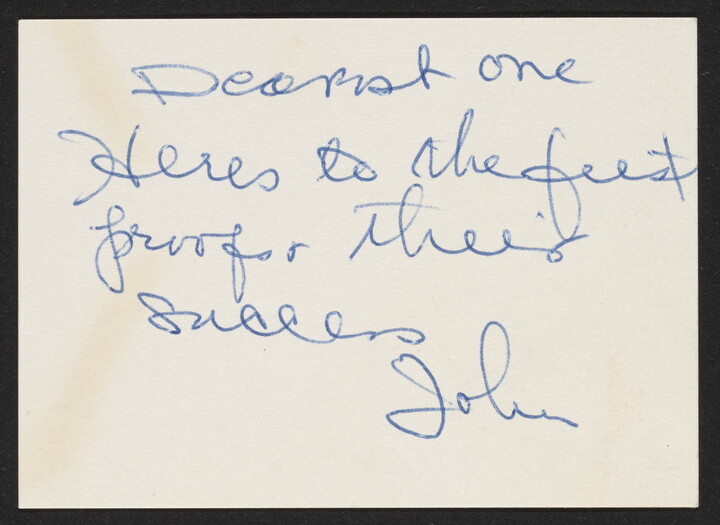 Dearest one
Heres to the first
proofs & their
success
John